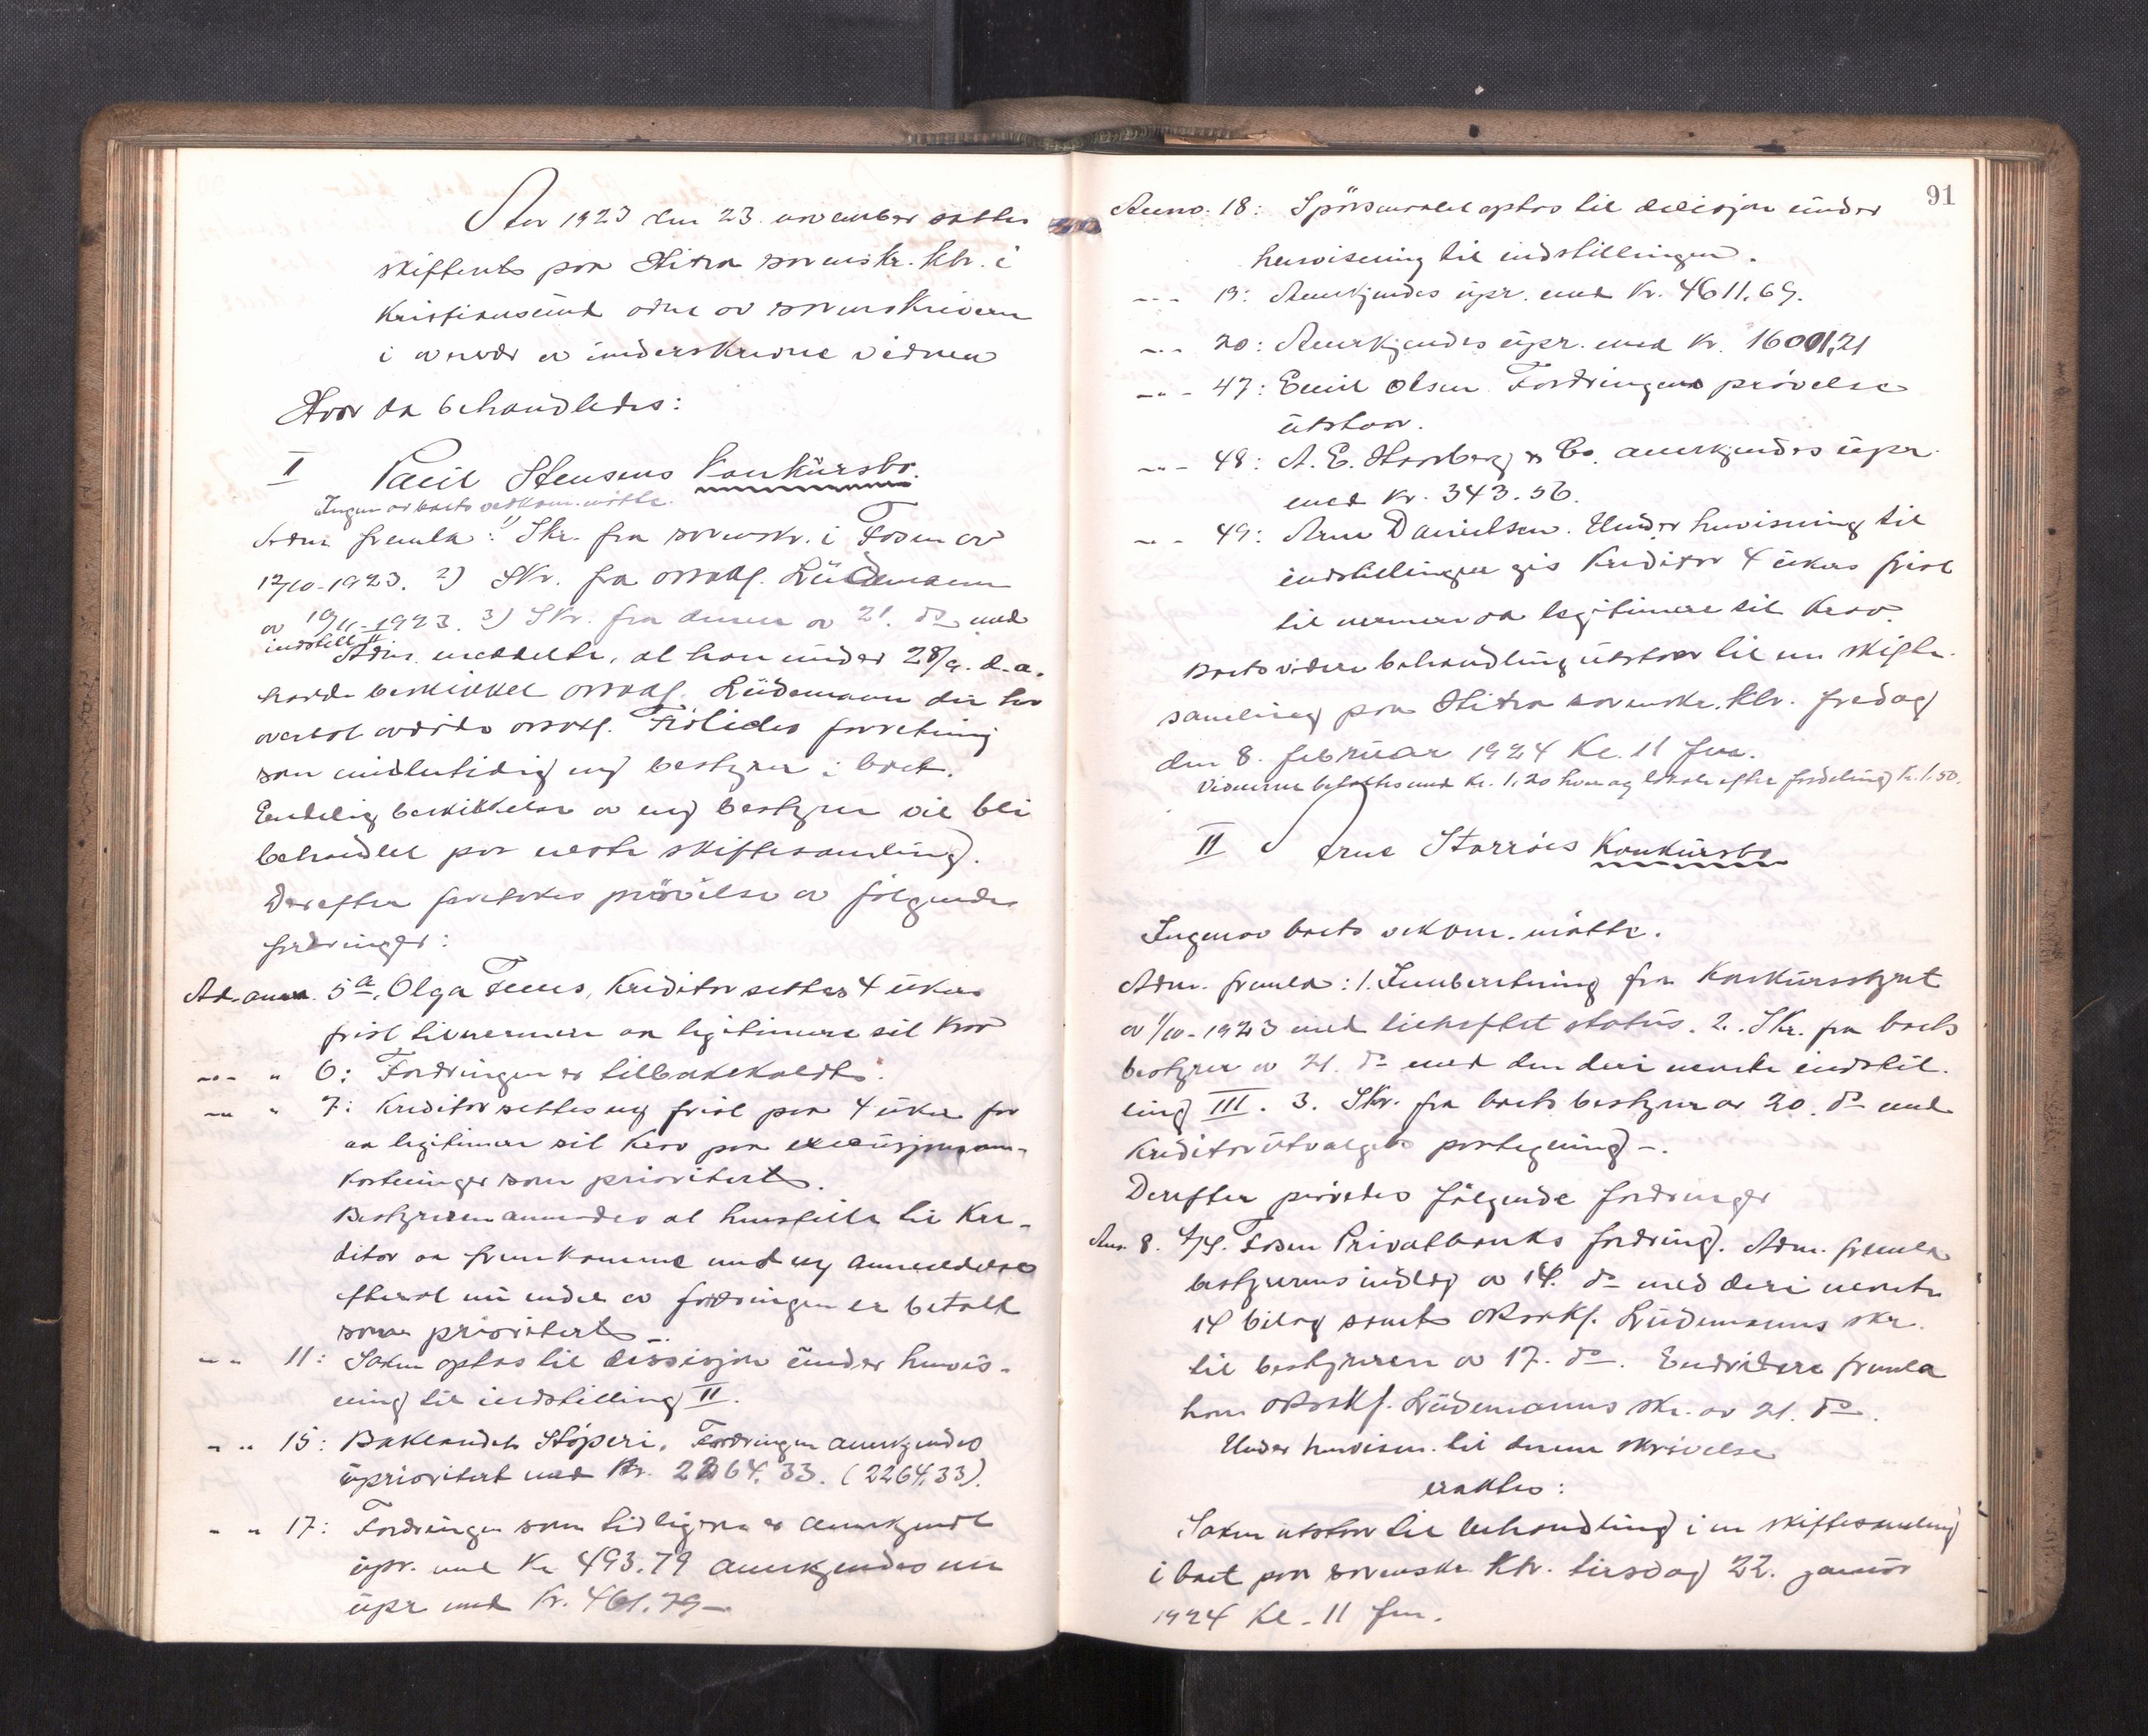 Aar 1923 den 23. november sattes
skifterets paa Hitra sorenskr. ktr. i
Kristiansund adm av sorenskriveren
i nærvær av underskrevne vidner
Hvor da behandledes:
I Paul Stensens Konkursbo.
Ingen av boets vedkom. møtte.
Adm fremla: 1) Skr. fra sorenskr. i Fosen av
12/10-1923. 2) Skr. fra orsakf. Lüdemann
av 19/11-1923. 3) Skr. fra denne av 21. do med
indstill. II
Adm. meddelte, at han under 28/9. d.a.
hadde beskikket orsakf. Lüdemann der har
overtat avdøde orsakf. Frólichs forretning
som midlertidig ny bestyrer i boet.
Endelig beskikkelse av ny bestyrer vil bli
behandlet paa neste skiftesamling.
Derefter foretokes prøvelse av følgende
fordringer:
Ad. anm. 5a. Olga Fenes, Kreditor settes 4 ukers
frist til nærmere aa legitimere sit krav
-"- " 6: Fordringen er tilbakekaldt.
-"- " 7: Kreditor settes ny frist paa 4 uker for
aa legitimere sit krav paa executsjonsom-
kostninger som prioritert.
Bestyreren anmodes at henstille til Kre-
ditor aa fremkomme med ny anmeldelse
efterat nu endel av fordringen er betalt
som prioritert -.
-"- 11: Saken optas til dessisjon under henvis-
ning til indstilling II.
-"- 15: Baklandets Støperi. Fordringen anerkjendes
uprioritert med Kr. 2264,33. (2264,33).
-"- 17: Fordringen som tidligere er anerkjendt
upr. med Kr 493.79 anerkjendes nu
upr med Kr. 461.79 -
91
Anm. 18: Spørsmaalet optas til decisjon under
henvisning til indstillingen.
-"- 19: Anerkjendes upr. med Kr. 4611,69.
-"- 20: Anerkjendes upr. med Kr. 16001,21
-"- 47: Emil Olsen Fordringens prøvelse
utstaar.
-"- 48: A. E. Hamberg & Co. anerkjendes upr.
med Kr. 343.56.
-"- 49: Arne Danielsen. Under henvisning til
indstillingen gis Kreditor 4 ukers frist
til nærmere aa legitimere sit krav.
Boets videre behandling utstaar til en skifte-
samling paa Hitra sorenskr. ktr. fredag
den 8. februar 1924 Kl. 11 fm.
Vidnerne betaltes med Kr. 1,20 hver og lokale efter fordeling Kr. 1.50.
II Arne Størröis Konkursbo
Ingen av boets vedkom. møtte.
Adm. fremla: 1. Innberetning fra Konkursstyret
av 1/10-1923 med tilheftet status. 2. Skr. fra boets
bestyrer av 21. do med den deri nevnte indstil-
ling III. 3. Skr. fra boets bestyrer av 20. do med
Kreditorutvalgets paategning -.
Derefter prøvedes følgende fordringer
Anm. 8. A/S. Fosen Privatbanks fordring. Adm. fremla
bestyrerens indlæg av 14. do med deri nevnte
14 bilag samt o.r.sakf. Lüdemanns skr.
til bestyreren av 17. do. Endvidere fremla
han o.r.sakf. Lüdemanns skr. av 21. do.
Under henvisn. til denne skrivelse
eraktes:
Saken utstaar til behandling i en skiftesamling
i boet paa sorenskr. Ktr. tirsdag 22. januar
1924 Kl. 11 fm.